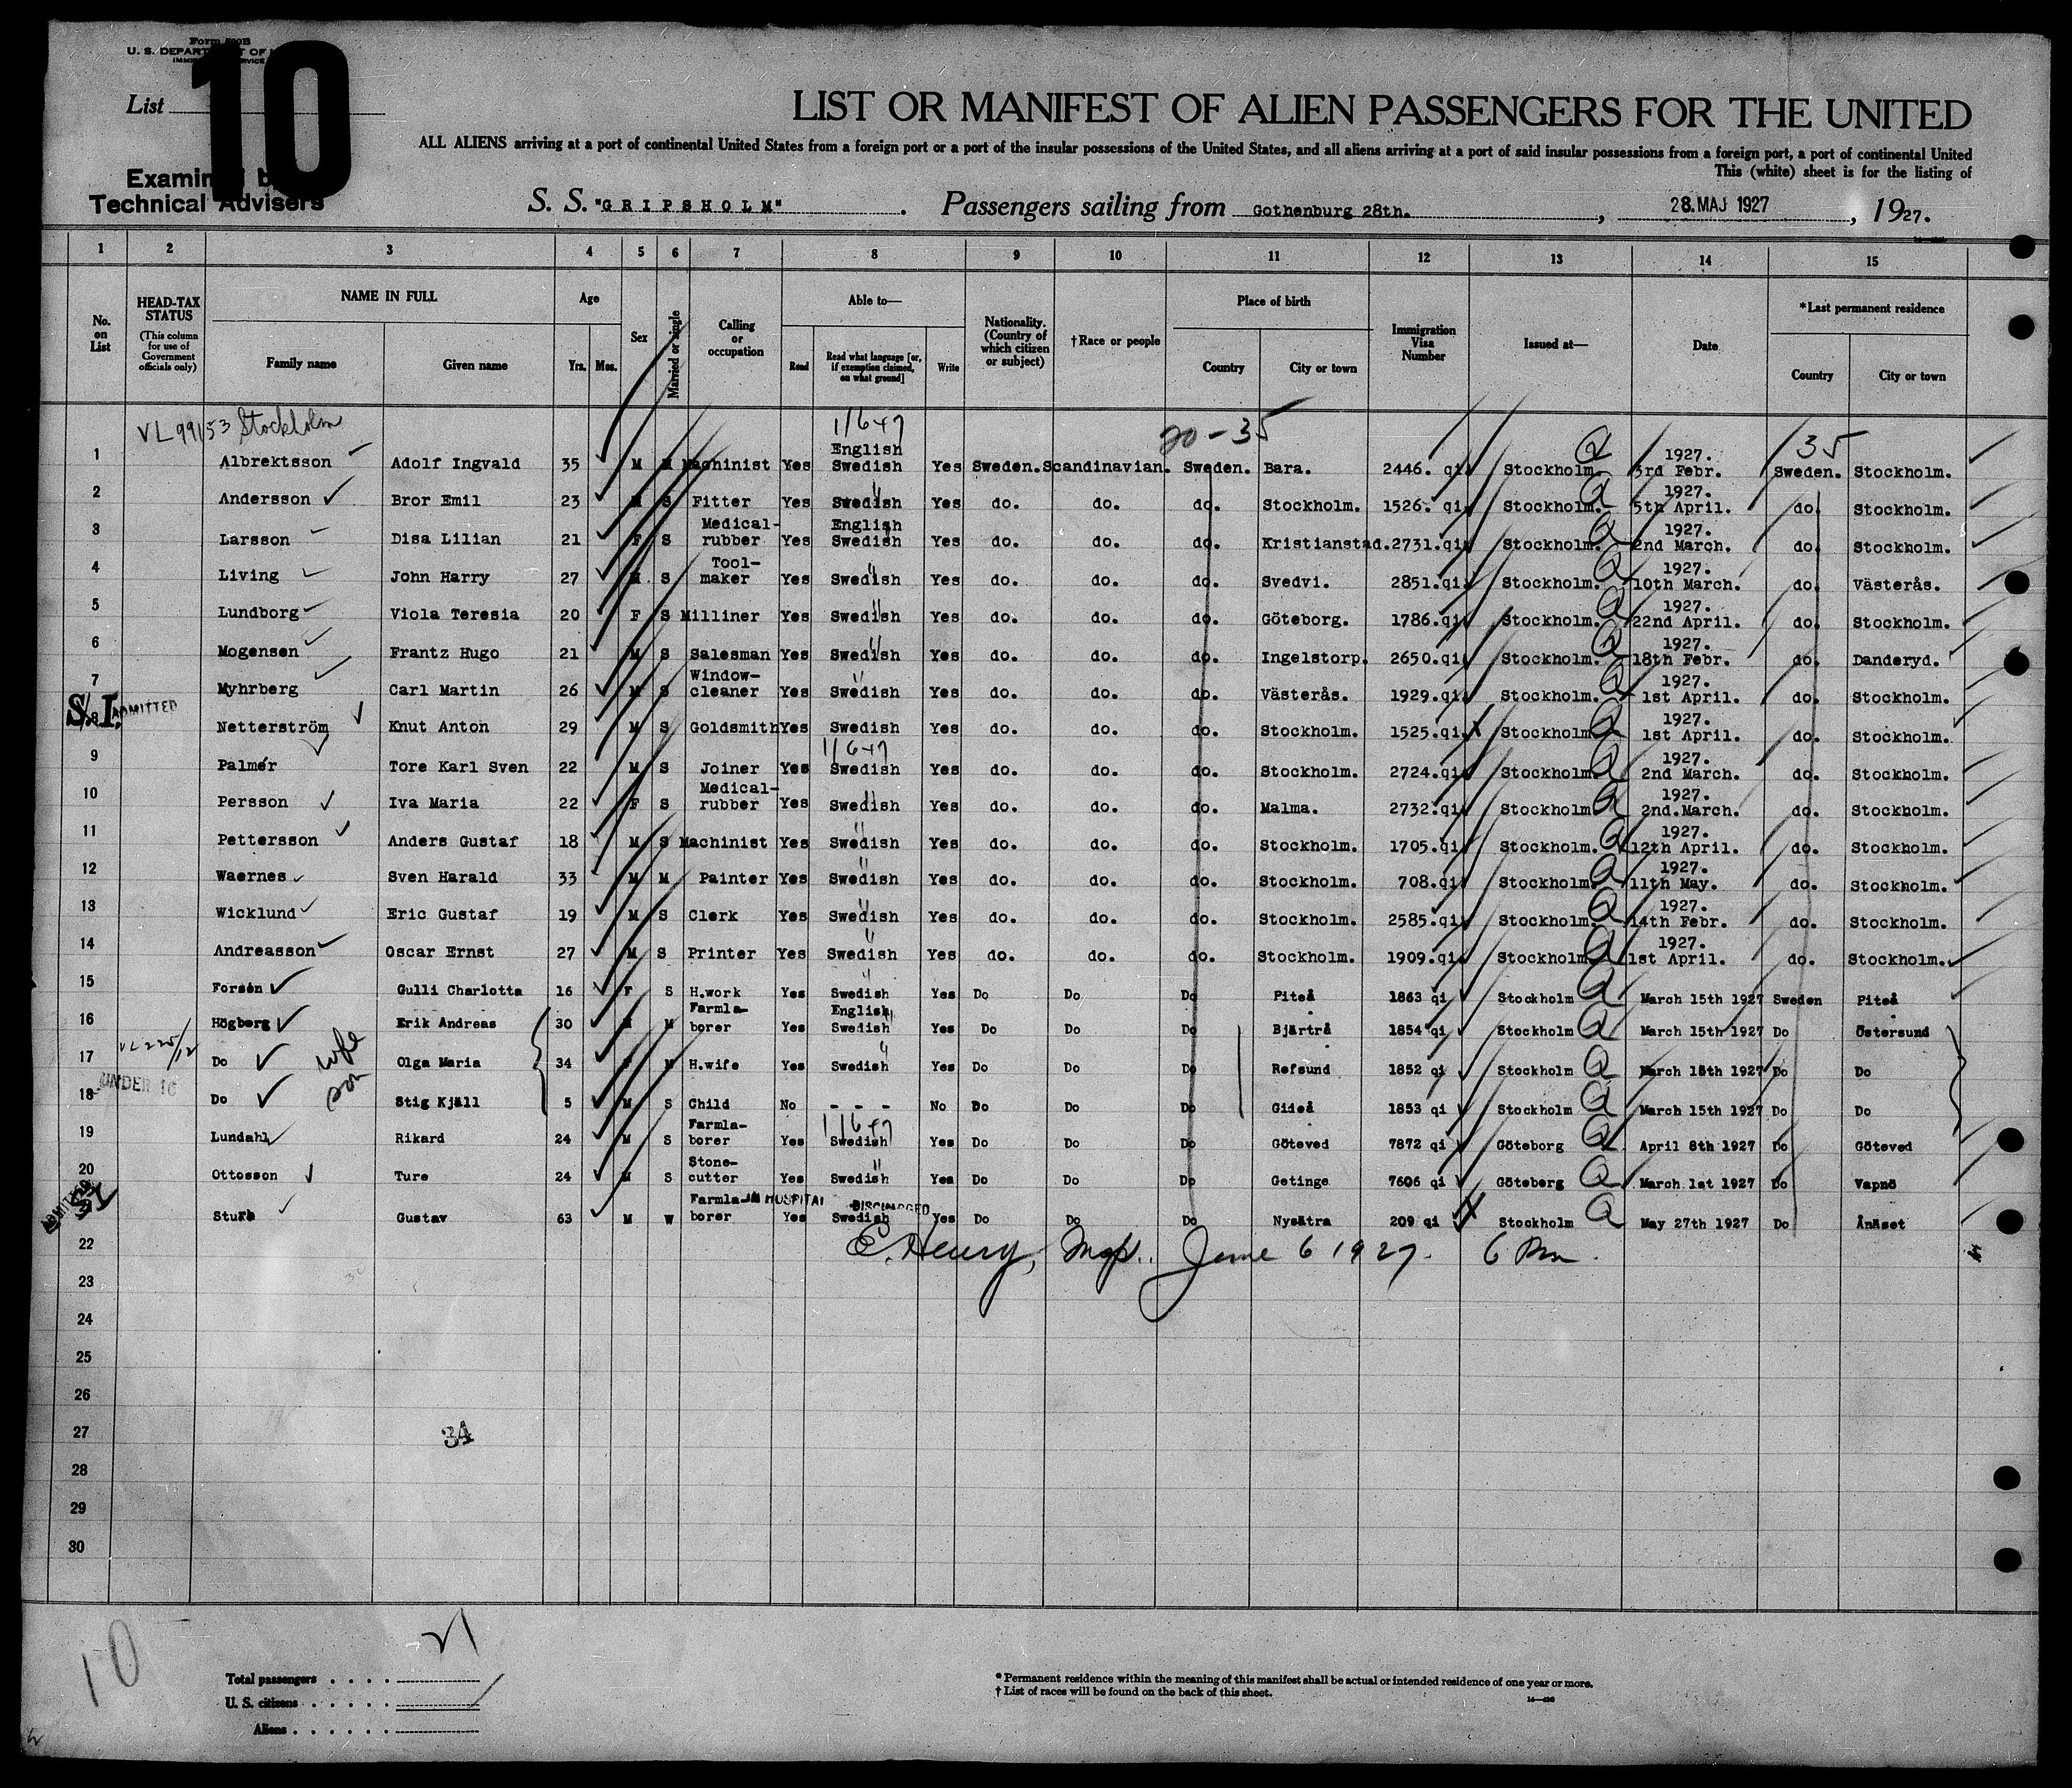 Form 500B
U. S. DEPARTMENT OF
List
10
Examined by
Technical Advisers
LIST OR MANIFEST OF ALIEN PASSENGERS FOR THE UNITED
ALL ALIENS arriving at a port of continental United States from a foreign port or a port of the insular possessions of the United States, and all aliens arriving at a port of said insular possessions from a foreign port, a port of continental United
This (white) sheet is for the listing of
S. S. "GRIPSHOLM" . Passengers sailing from Gothenburg 28th. , 28.MAJ 1927 , 1927.
1 2 3 4 5 6 7 8 9 10 11 12 13 14 15
No. on List
HEAD-TAX STATUS
(This column for use of Government officials only)
NAME IN FULL
Family name Given name
Age
Yrs. Mos.
Sex
Married or single
Calling or occupation
Able to—
Read Read what language [or, if exemption claimed, on what ground] Write
Nationality. (Country of which citizen or subject)
†Race or people
Place of birth
Country City or town
Immigration Visa Number
Issued at—
Date
*Last permanent residence
Country City or town
VL 99153 Stockholm 20-35 35
1 Albrektsson Adolf Ingvald 35 M M Machinist Yes English Swedish Yes Sweden. Scandinavian. Sweden. Bara. 2446. qi Stockholm. 1927. 3rd Febr. Sweden. Stockholm.
2 Andersson Bror Emil 23 M S Fitter Yes Swedish Yes do. do. do. Stockholm. 1526. qi Stockholm. 1927. 5th April. do. Stockholm.
3 Larsson Disa Lilian 21 F S Medical-rubber Yes English Swedish Yes do. do. do. Kristianstad. 2731.qi Stockholm. 1927. 2nd March. do. Stockholm.
4 Living John Harry 27 M S Tool-maker Yes Swedish Yes do. do. do. Svedvi. 2851.qi Stockholm. 1927. 10th March. do. Västerås.
5 Lundborg Viola Teresia 20 F S Milliner Yes Swedish Yes do. do. do. Göteborg. 1786.qi Stockholm. 1927. 22nd April. do. Stockholm.
6 Mogensen Frantz Hugo 21 M S Salesman Yes Swedish Yes do. do. do. Ingelstorp. 2650.qi Stockholm. 1927. 18th Febr. do. Danderyd.
7 Myhrberg Carl Martin 26 M S Window-cleaner Yes Swedish Yes do. do. do. Västerås. 1929.qi Stockholm. 1927. 1st April. do. Stockholm.
S.I. ADMITTED
8 Netterström Knut Anton 29 M S Goldsmith Yes Swedish Yes do. do. do. Stockholm. 1525.qi Stockholm 1927. 1st April. do. Stockholm.
9 Palmér Tore Karl Sven 22 M S Joiner Yes Swedish Yes do. do. do. Stockholm. 2724.qi Stockholm. 1927. 2nd March. do. Stockholm.
10 Persson Iva Maria 22 F S Medical-rubber Yes Swedish Yes do. do. do. Malma. 2732.qi Stockholm 1927. 2nd.March. do. Stockholm.
11 Pettersson Anders Gustaf 18 M S Machinist Yes Swedish Yes do. do. do. Stockholm. 1705.qi Stockholm. 1927. 12th April. do. Stockholm.
12 Waernes Sven Harald 33 M M Painter Yes Swedish Yes do. do. do. Stockholm. 708.qi Stockholm. 1927. 11th May. do. Stockholm.
13 Wicklund Eric Gustaf 19 M S Clerk Yes Swedish Yes do. do. do. Stockholm. 2585.qi Stockholm. 1927. 14th Febr. do. Stockholm.
14 Andreasson Oscar Ernst 27 M S Printer Yes Swedish Yes do. do. do. Stockholm. 1909.qi Stockholm. 1927. 1st April. do. Stockholm.
15 Forsén Gulli Charlotta 16 F S H.work Yes Swedish Yes Do Do Do Piteå 1863 qi Stockholm March 15th 1927 Sweden Piteå
16 Högberg Erik Andreas 30 M M Farmla-borer Yes English Swedish Yes Do Do Do Bjärtrå 1854 qi Stockholm March 15th 1927 Do Östersund
17 Do wife Olga Maria 34 M H.wife Yes Swedish Yes Do Do Do Refsund 1852 qi Stockholm March 15th 1927 Do Do
UNDER 16
18 Do son Stig Kjäll 5 M S Child No - - - No Do Do Do Gideå 1853 qi Stockholm March 15th 1927 Do Do
19 Lundahl Rikard 24 M S Farmla-borer Yes Swedish Yes Do Do Do Göteved 7872 qi Göteborg April 8th 1927 Do Göteved
20 Ottosson Ture 24 M S Stone-cutter Yes Swedish Yes Do Do Do Getinge 7606 qi Göteborg March 1st 1927 Do Vapnö
ADMITTED SI IN HOSPITAL DISCHARGED
Sturk Gustav 63 M W Farmla-borer Yes Swedish Yes Do Do Do Nysätra 209 qi Stockholm May 27th 1927 Do Ånäset
22 E. Henry, Insp. June 6 1927. 6 Pm.
23
24
25
26
27 34
28
29
30
21
10
Total passengers
U. S. citizens
Aliens
* Permanent residence within the meaning of this manifest shall be actual or intended residence of one year or more.
† List of races will be found on the back of this sheet.